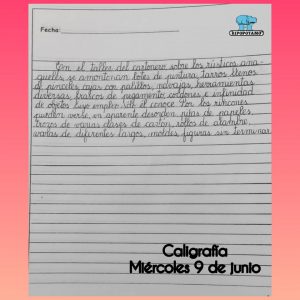 HIPOPOTAMO
Fecha:
En el taller del cartonero sobre los rústicos ana-
queles, se amontonan botes de pintura, tarros llenos
de pinceles, cajas con palillos, navajas, herramientas
diversas, frascos de pegamento, cordones e infinidad
de objetos cuyo empleo sólo él conoce. Por los rincones
pueden verse, en aparente desorden, pilas de papeles,
trozos de varias clases de cartón, rollos de alambre,
varas de diferentes largos, moldes, figuras sin terminar.
Caligrafía
Miércoles 9 de junio